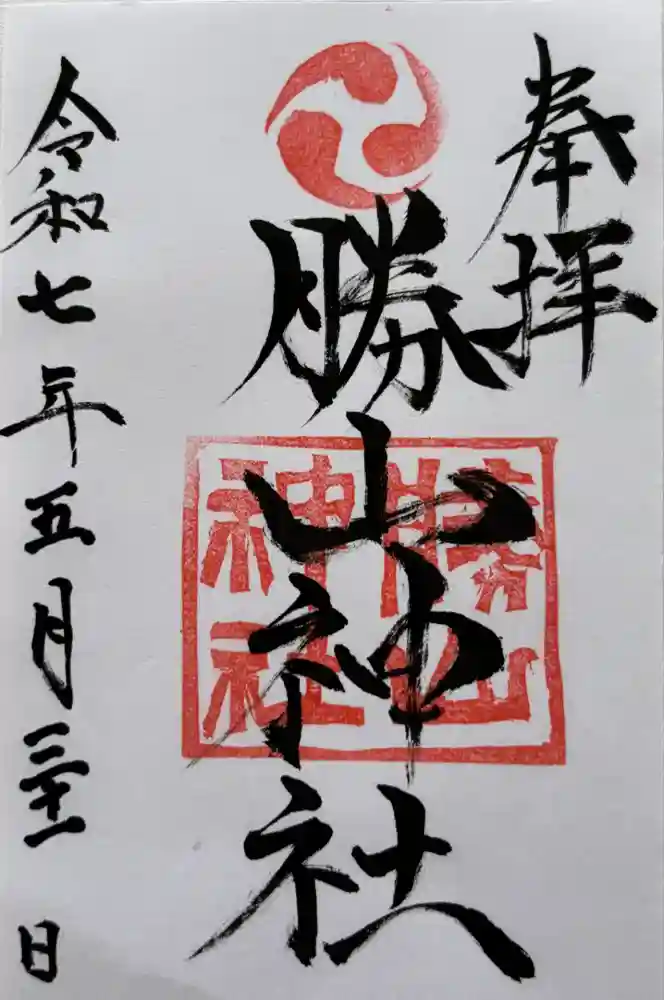 奉拝
勝山神社
勝山
神社
令和七年五月三十一日